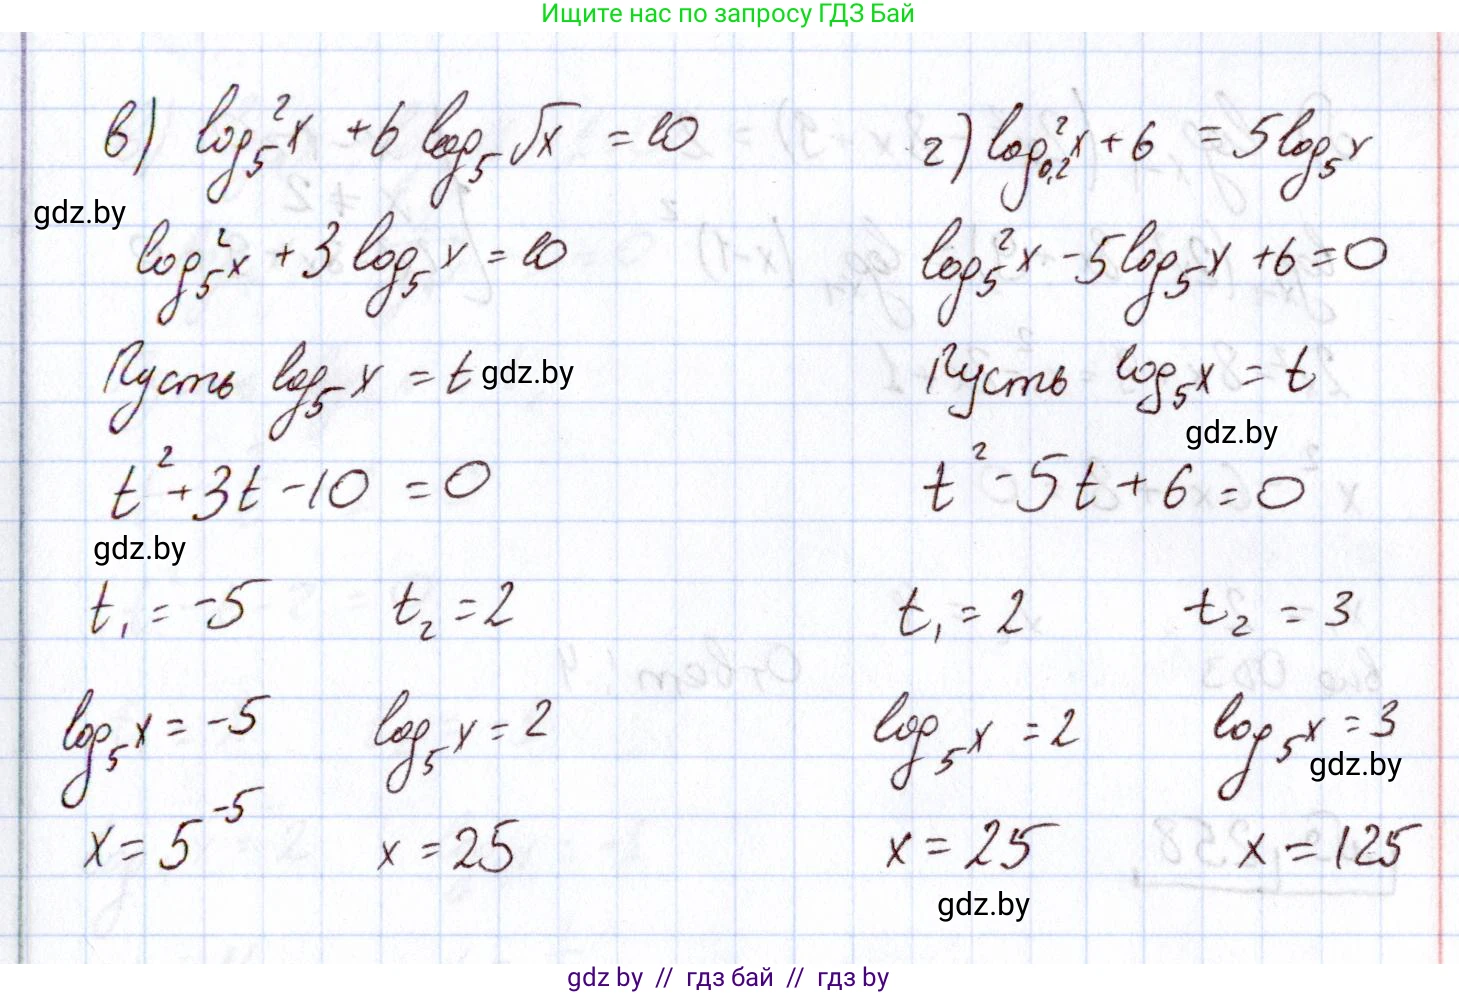 Ищите нас по запросу ГДЗ Бай
в) log₅²x + 6 log₅√x = 10
gdz.by
log₅²x + 3 log₅x = 10
Пусть log₅x = t
gdz.by
t² + 3t - 10 = 0
gdz.by
t₁ = -5 t₂ = 2
log₅x = -5 log₅x = 2
x = 5⁻⁵ x = 25
г) log₀,₂²x + 6 = 5 log₅x
log₅²x - 5 log₅x + 6 = 0
Пусть log₅x = t
gdz.by
t² - 5t + 6 = 0
t₁ = 2 t₂ = 3
log₅x = 2 log₅x = 3
gdz.by
x = 25 x = 125
gdz.by
gdz by // гдз бай // гдз by